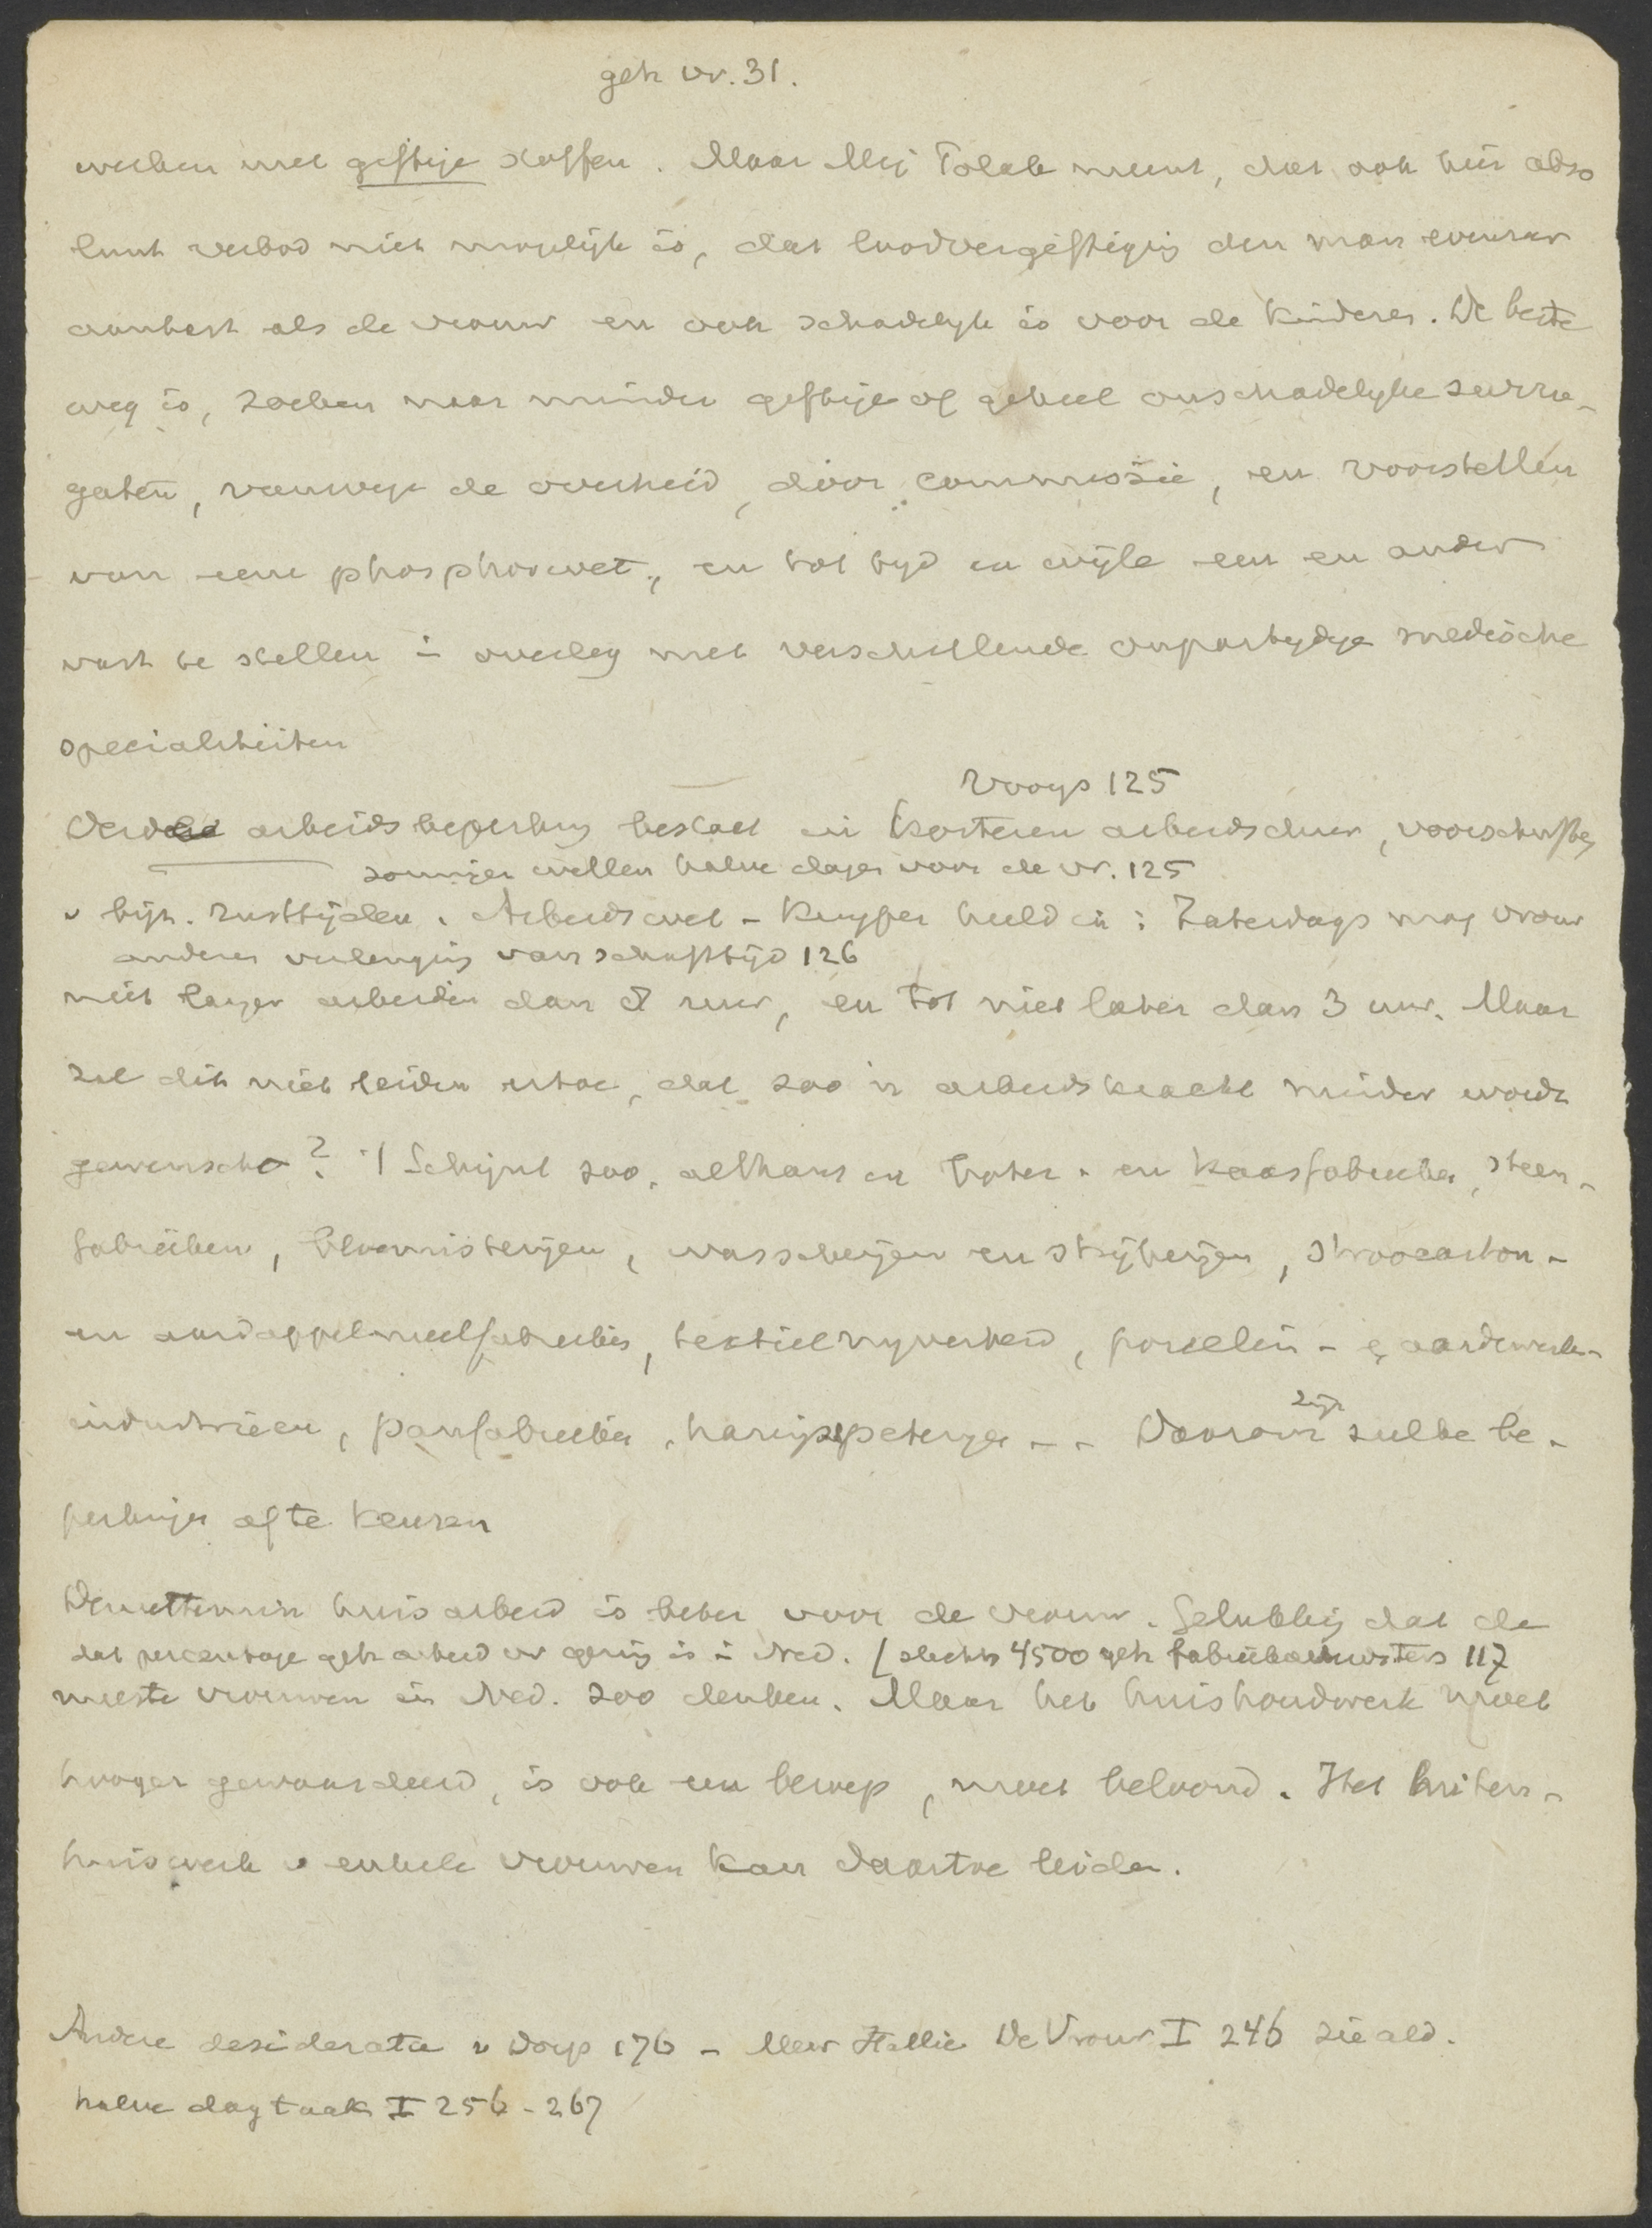 geh vr. 31.
werken met giftige stoffen. Maar Mej Polak meent, dat ook hier abso
luut verbod niet mogelijk is, dat loodvergiftiging den man evenzeer
aantast als de vrouw en ook schadelijk is voor de kinderen. De beste
weg is, zoeken naar minder giftige of geheel onschadelijke surro-
gaten, vanwege de overheid, door commissie, en voorstellen
van eene phosphorwet, en tot tijd en wijle een en ander
vast te stellen in overleg met verschillende onpartijdige medische
specialiteiten
Vooys 125
Verdere arbeidsbeperking bestaat in korteren arbeidsduur, voorschriften
sommigen willen halve dagen voor de vr. 125
v bijz. rusttijden. Arbeidswet-Kuyper hield in: Zaterdags mag vrouw
anderen verlenging van schafttijd 126
niet langer arbeiden dan 8 uur, en tot niet later dan 3 uur. Maar
zal dit niet leiden ertoe, dat zoo'n arbeidskracht minder wordt
gewenscht? 't Schijnt zoo, althans in boter- en kaasfabrieken, steen-
fabrieken, bloemisterijen, wasscherijen en strijkerijen, stroocarton-
en aardappelmeelfabrieken, textielnijverheid, porselein- en aardewerk-
industrieën, panfabrieken, haringspeterijen -- Daarom zijn zulke be-
perkingen af te keuren
Desniettemin huisarbeid is beter voor de vrouw. Gelukkig dat de
dat percentage geh arbeid vr gering is in Ned. (slechts 4500 geh fabrieksarbeidsters 117
meeste vrouwen in Ned. zoo denken. Maar het huishoudwerk moet
hooger gewaardeerd, is ook een beroep, moet beloond. Het buitens-
huiswerk v enkele vrouwen kan daartoe leiden.
Andere desiderata v Dorp 176 - Mevr Hallie De Vrouw I 246 zie ald.
halve dagtaak I 256-267